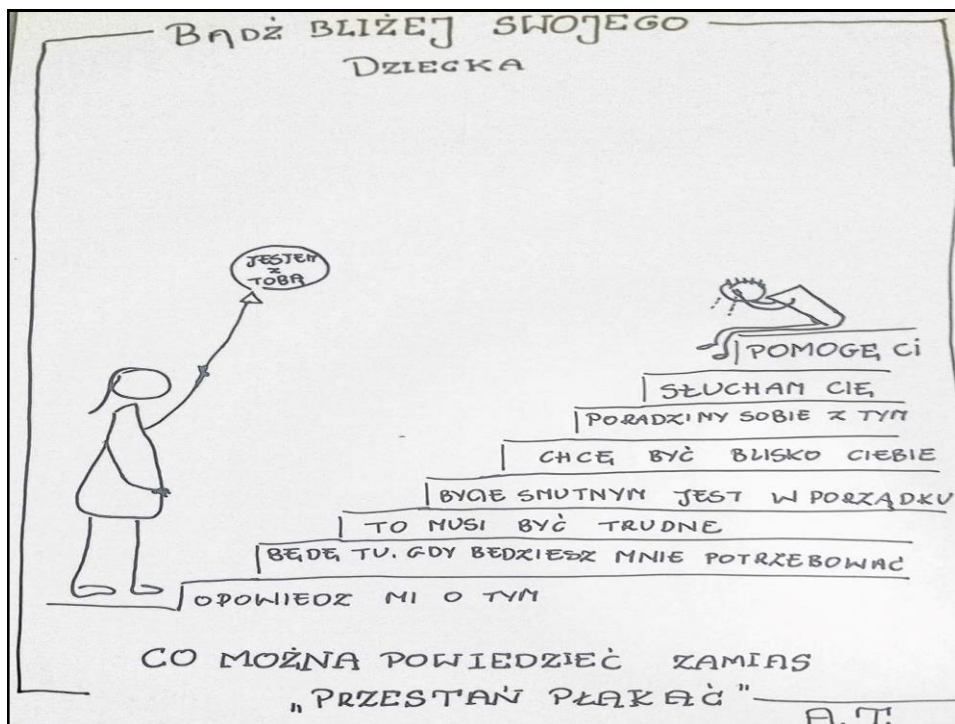 BĄDŹ BLIŻEJ SWOJEGO
DZIECKA
JESTEM
Z
TOBĄ
POMOGĘ CI
SŁUCHAM CIĘ
PORADZIMY SOBIE Z TYM
CHCĘ BYĆ BLISKO CIEBIE
BYCIE SMUTNYM JEST W PORZĄDKU
TO MUSI BYĆ TRUDNE
BĘDĘ TU. GDY BEDZIESZ MNIE POTRZEBOWAĆ
OPOWIEDZ MI O TYM
CO MOŻNA POWIEDZIEĆ ZAMIAS
„PRZESTAŃ PŁAKAĆ"
A.T.